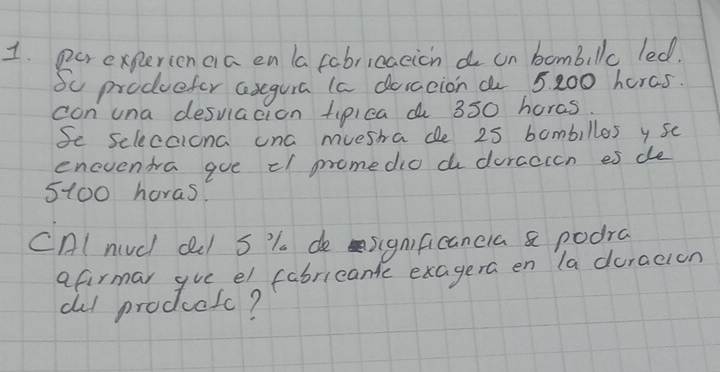 1. por experiencia en la fabricación de un bombillo led.
Su productor asegura la duración de 5.200 horas.
con una desviación tipica de 350 horas.
Se selecciona una muestra de 25 bombillos y se
encuentra que el promedio de duración es de
5100 horas.
¿Al nivel del 5 % de significancia se podra
afirmar que el fabricante exagera en la duracion
del producto?